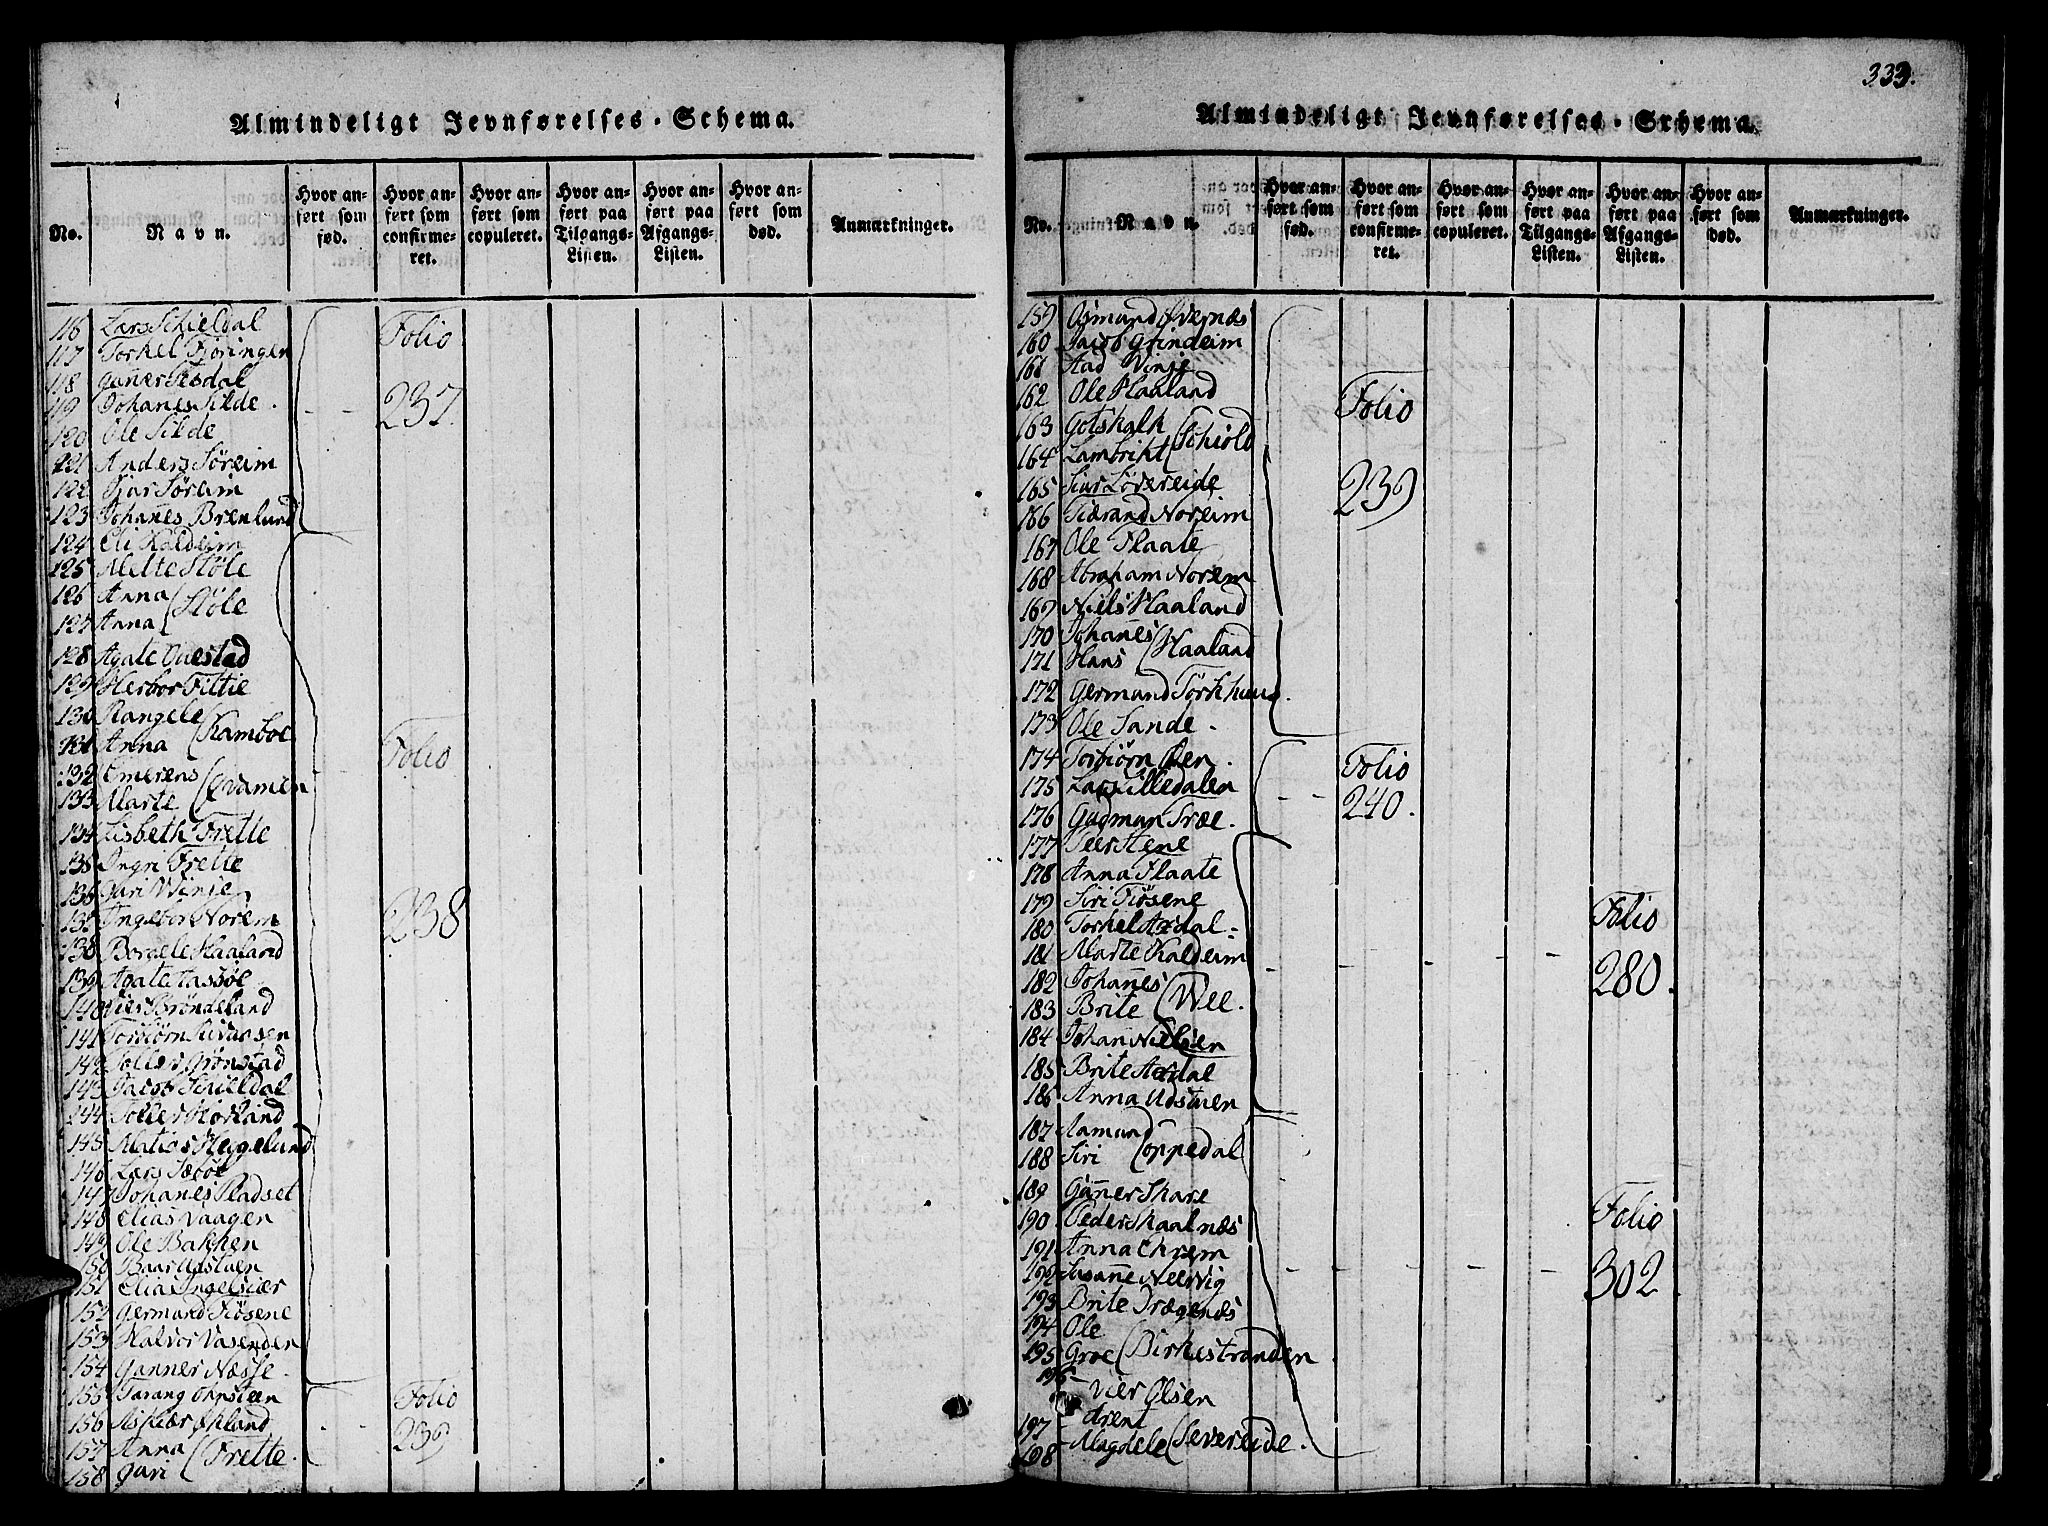 Almindeligt Jevnførelses-Schema.
No.
Navn.
Hvor anført som fød.
Hvor anført som confirmeret.
Hvor anført som copuleret.
Hvor anført paa Tilgangs-Listen.
Hvor anført paa Afgangs-Listen.
Hvor anført som død.
Anmærkninger.
116 Lars Schieldal
Folio
117 Torkel Fjøringen
118 Gunner Sesdal
119 Johanes Silde
237.
120 Ole Silde
121 Anders Søreim
122 Søreim
123 Johanes Brenlund
124 Eli Kaldeim
125 Mette Støle
126 Anna
127 Anna (Støle
128 Agate
129 Herbor Tittie
130 Rangele
131 Anna (Kamboe
Folio
132 Emerens
133 Marte (Qvamen
134 Lisbeth Frette
135 Ingri Frette
136 Guri Vinje
137 Ingebor Norem
238
138 Borgele Haaland
139 Agate
140 Brøndeland
141 Torbiørn
142 Toller Grønstad
143 Jacob Schieldal
144 Toller Hovland
145 Matias Heggelund
146 Lars Sæbøe
147 Johanes Pladset
148 Elias Vaagen
149 Ole Bakken
150 Baar Udstuen
151 Elias Ingelsiær
152 Germund Fiøsene
153 Halvor Vasenden
154 Gunner Næsse.
155
Folio
156 Økland
239
157 Anna
158 Guri (Frette.
333.
Almindeligt Jevnførelses-Schema.
No.
Navn.
Hvor anført som fød.
Hvor anført som confirmeret.
Hvor anført som copuleret.
Hvor anført paa Tilgangs-Listen.
Hvor anført paa Afgangs-Listen.
Hvor anført som død.
Anmærkninger.
159 Asmund Øvernæs
160 Jacob Grindeim
161 Aad Vinje
162 Ole Haaland
Folio
163 Gotskalk
164 Lambrikt (Schiold
165 Siur Løvereide
239
166 Tiærand Noreim
167 Ole Flaate
168 Abraham Norem
169 Niels Haaland
170 Johanes
171 Hans (Haaland
172 Germund
173 Ole Sande.
174 Torbiørn Øen.
Folio
175 Lars Lilledalen
176 Gudmun Træe.
240.
177 Peer Stene
178 Anna Flaate
179 Siri Fiøsene
Folio
180 Torkel Axdal
181 Marte Kaldeim
182 Johanes
280.
183 Brite (Vee.
184 Johan Nielsen
185 Brite Axdal
186 Anna Udstuen
187 Aamund
188 Siri (Oppedal
189 Gunner Skare
190 Peder Skaalnæs
Folio
191 Anna Ehrem
192 Susanne Nervig
193 Brite Drægenæs
302
194 Ole
195 Groe (Birkestranden
196 Olsen
197 Arent
198 Magdele (Severeide.